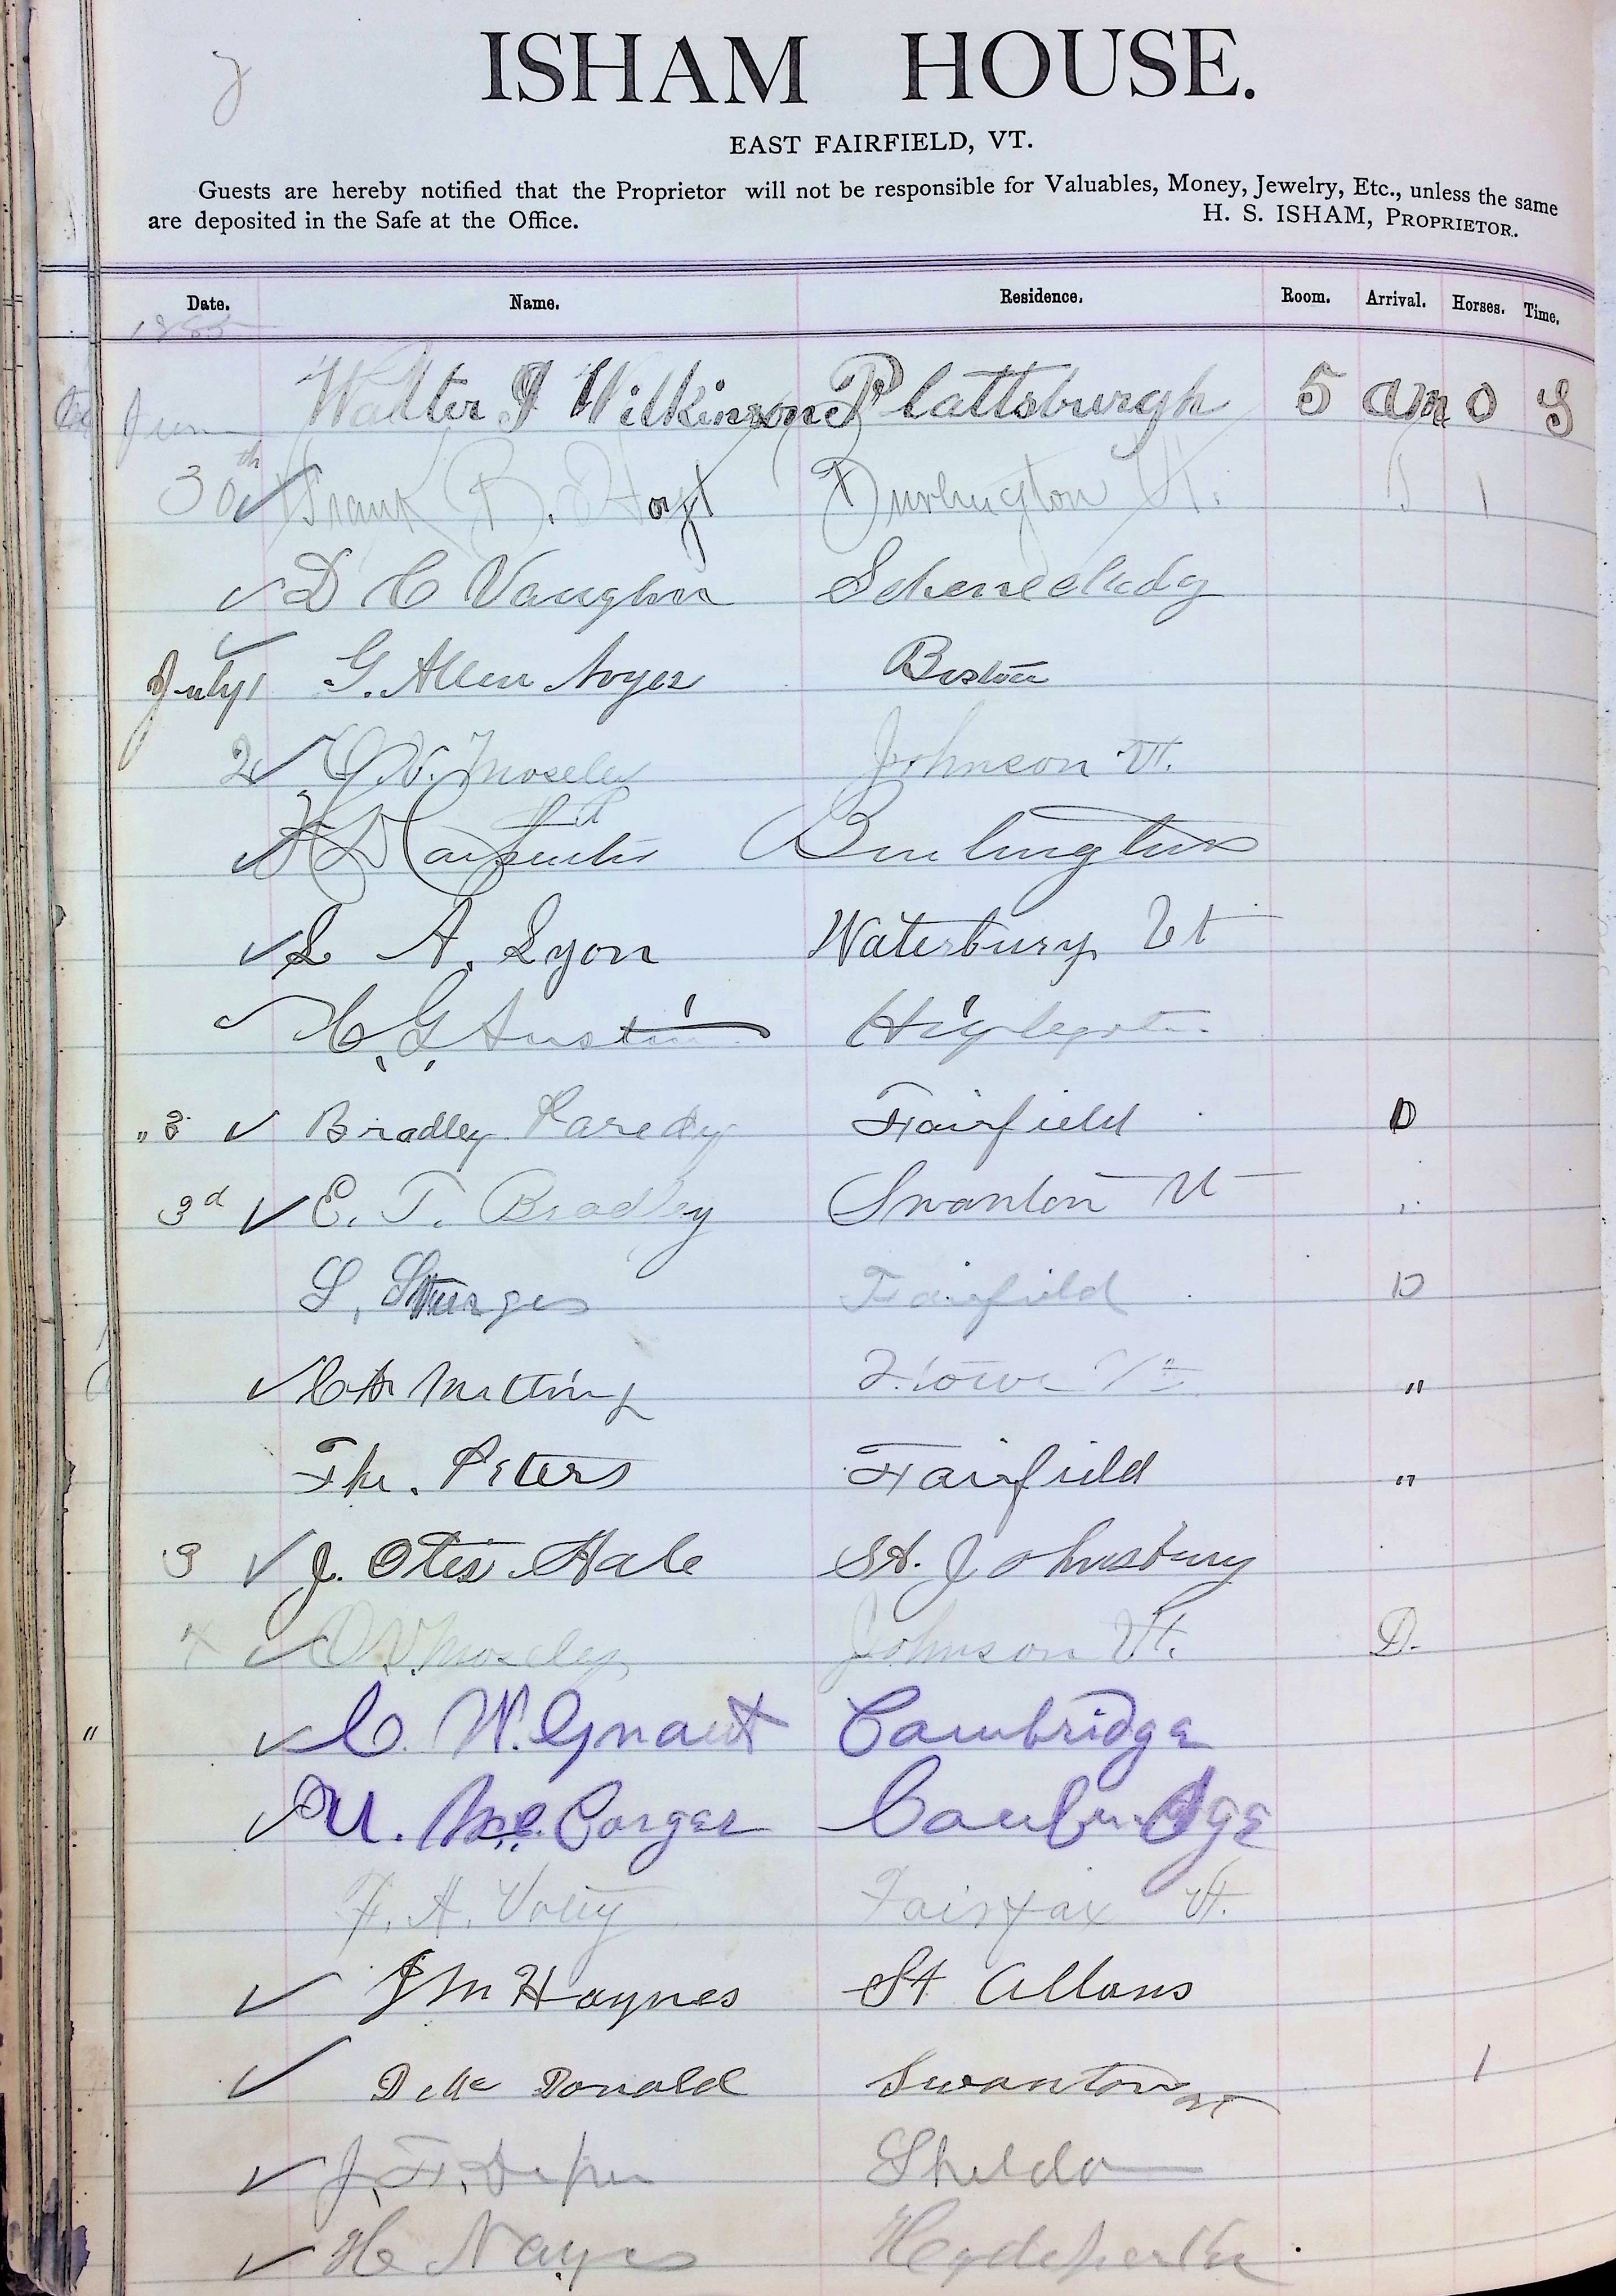 ISHAM HOUSE.
EAST FAIRFIELD, VT.
Guests are hereby notified that the Proprietor will not be responsible for Valuables, Money, Jewelry, Etc., unless the same
are deposited in the Safe at the Office. H. S. ISHAM, PROPRIETOR.
Date. Name. Residence. Room. Arrival. Horses. Time.
1885
June Walter J Wilkinson Plattsburgh 5 am 0 S
30th Frank B. Hoyt Burlington Vt. 1
D C Vaughn Schenectady
July 1 G. Allen Noyes Boston
2 O. V. Moseley Johnson Vt.
Carpenter Burlington
L A. Lyon Waterbury Vt
C. G. Austin Highgate
" 3 Bradley Fairfield D
3d E. T. Bradley Swanton Vt "
L. Sturges Fairfield D
Stowe Vt "
Peters Fairfield "
3 J. Otis Hale St. Johnsbury
4 O. V. Moseley Johnson Vt. D.
" C. W. Cambridge
Cambridge
F. A. Fairfax Vt.
J M Haynes St Albans
D Mc Donald Swanton Vt 1
J. F. Sheldon
H Hydepark